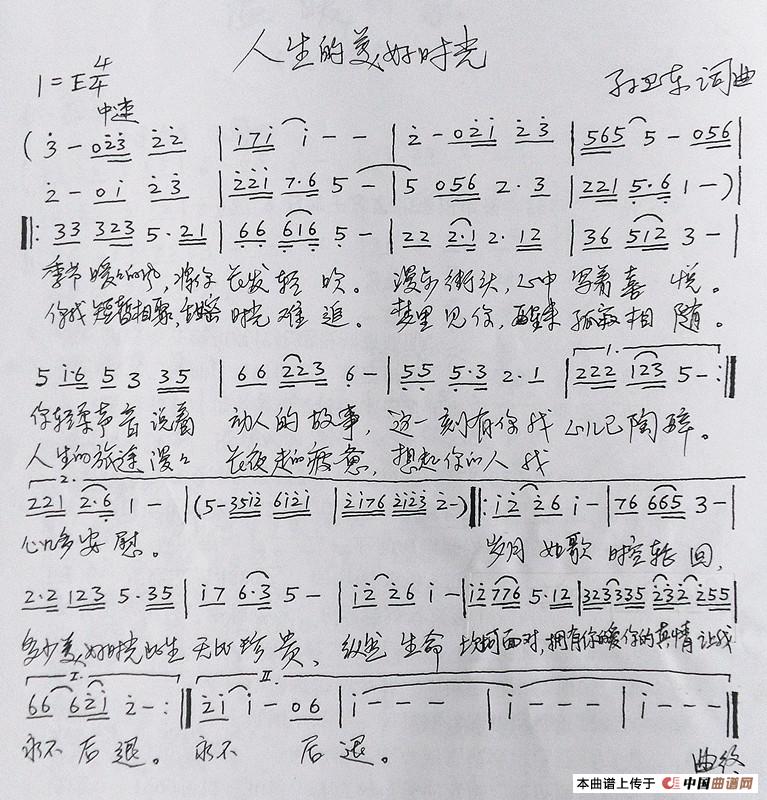 人生的美好时光
1=E 4/4
中速
孙卫东 词曲
(3 - 023 22 | 171 1 - - | 2 - 021 23 | 565 5 - 056 |
2 - 01 23 | 221 7·6 5 - | 5 056 2·3 | 221 5·6 1 -) |
‖: 33 323 5·21 | 66 616 5 - | 22 2·1 2·12 | 36 512 3 - |
季节暖暖的风,将你长发轻吹。漫步街头,心中写着喜悦。
你我短暂相聚,时光难追。梦里见你,醒来孤寂相随。
5 1·6 5 3 35 | 66 223 6 - | 55 5·3 2·1 | 1. 222 123 5 - :‖
你轻柔声音说着动人的故事,这一刻有你我心儿已陶醉。
人生的旅途漫漫长夜走的疲惫,想起你的人我
2. 221 2·6 1 - | (5 - 3512 6121 | 2176 2123 2 -) ‖: 12 26 1 - | 76 665 3 - |
心儿多安慰。岁月如歌时空轮回,
2·2 123 5·35 | 17 6·3 5 - | 12 26 1 - | 12776 5·12 | 323335 232255 |
多少美好时光此生无比珍贵、纵然生命坎坷面对,拥有你的暖你的真情让我
I. 66 621 2 - :‖ II. 21 1 - 06 | 1 - - - | 1 - - - | 1 - - - ‖
永不后退。永不后退。
曲终
本曲谱上传于 中国曲谱网